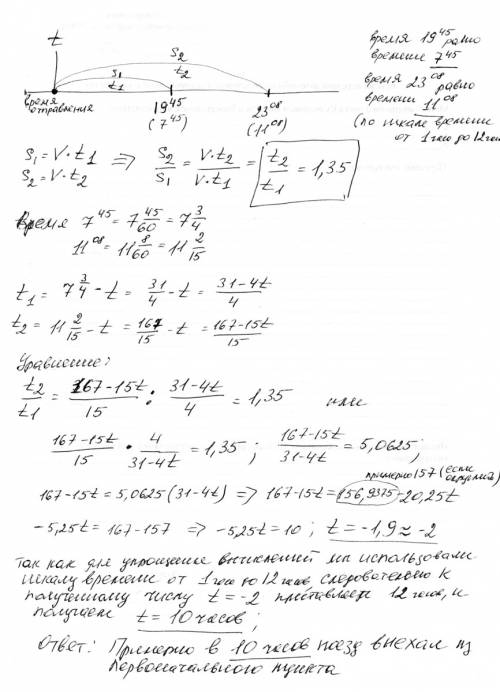 t
S₂
t₂
S₁
t₁
время отправления
19⁴⁵
(7⁴⁵)
23⁰⁸
(11⁰⁸)
время 19⁴⁵ равно
времени 7⁴⁵
время 23⁰⁸ равно
времени 11⁰⁸
(по шкале времени
от 1 час до 12 час
S₁ = V·t₁ ⇒ S₂/S₁ = V·t₂/V·t₁ = t₂/t₁ = 1,35
S₂ = V·t₂
Время 7⁴⁵ = 7 45/60 = 7 3/4
11⁰⁸ = 11 8/60 = 11 2/15
t₁ = 7 3/4 - t = 31/4 - t = 31-4t/4
t₂ = 11 2/15 - t = 167/15 - t = 167-15t/15
Уравнение:
t₂/t₁ = 167-15t/15 : 31-4t/4 = 1,35 или
167-15t/15 · 4/31-4t = 1,35; 167-15t/31-4t = 5,0625;
примерно 157 (если округлить)
167-15t = 5,0625(31-4t) ⇒ 167-15t = 156,9375-20,25t
-5,25t = 167-157 ⇒ -5,25t = 10; t = -1,9 ≈ -2
так как для упрощения вычислений мы использовали
шкалу времени от 1 час до 12 часов, следовательно к
полученному числу t = -2 приставляем 12 часов, и
получаем t = 10 часов;
Ответ: Примерно в 10 часов поезд выехал из
первоначального пункта